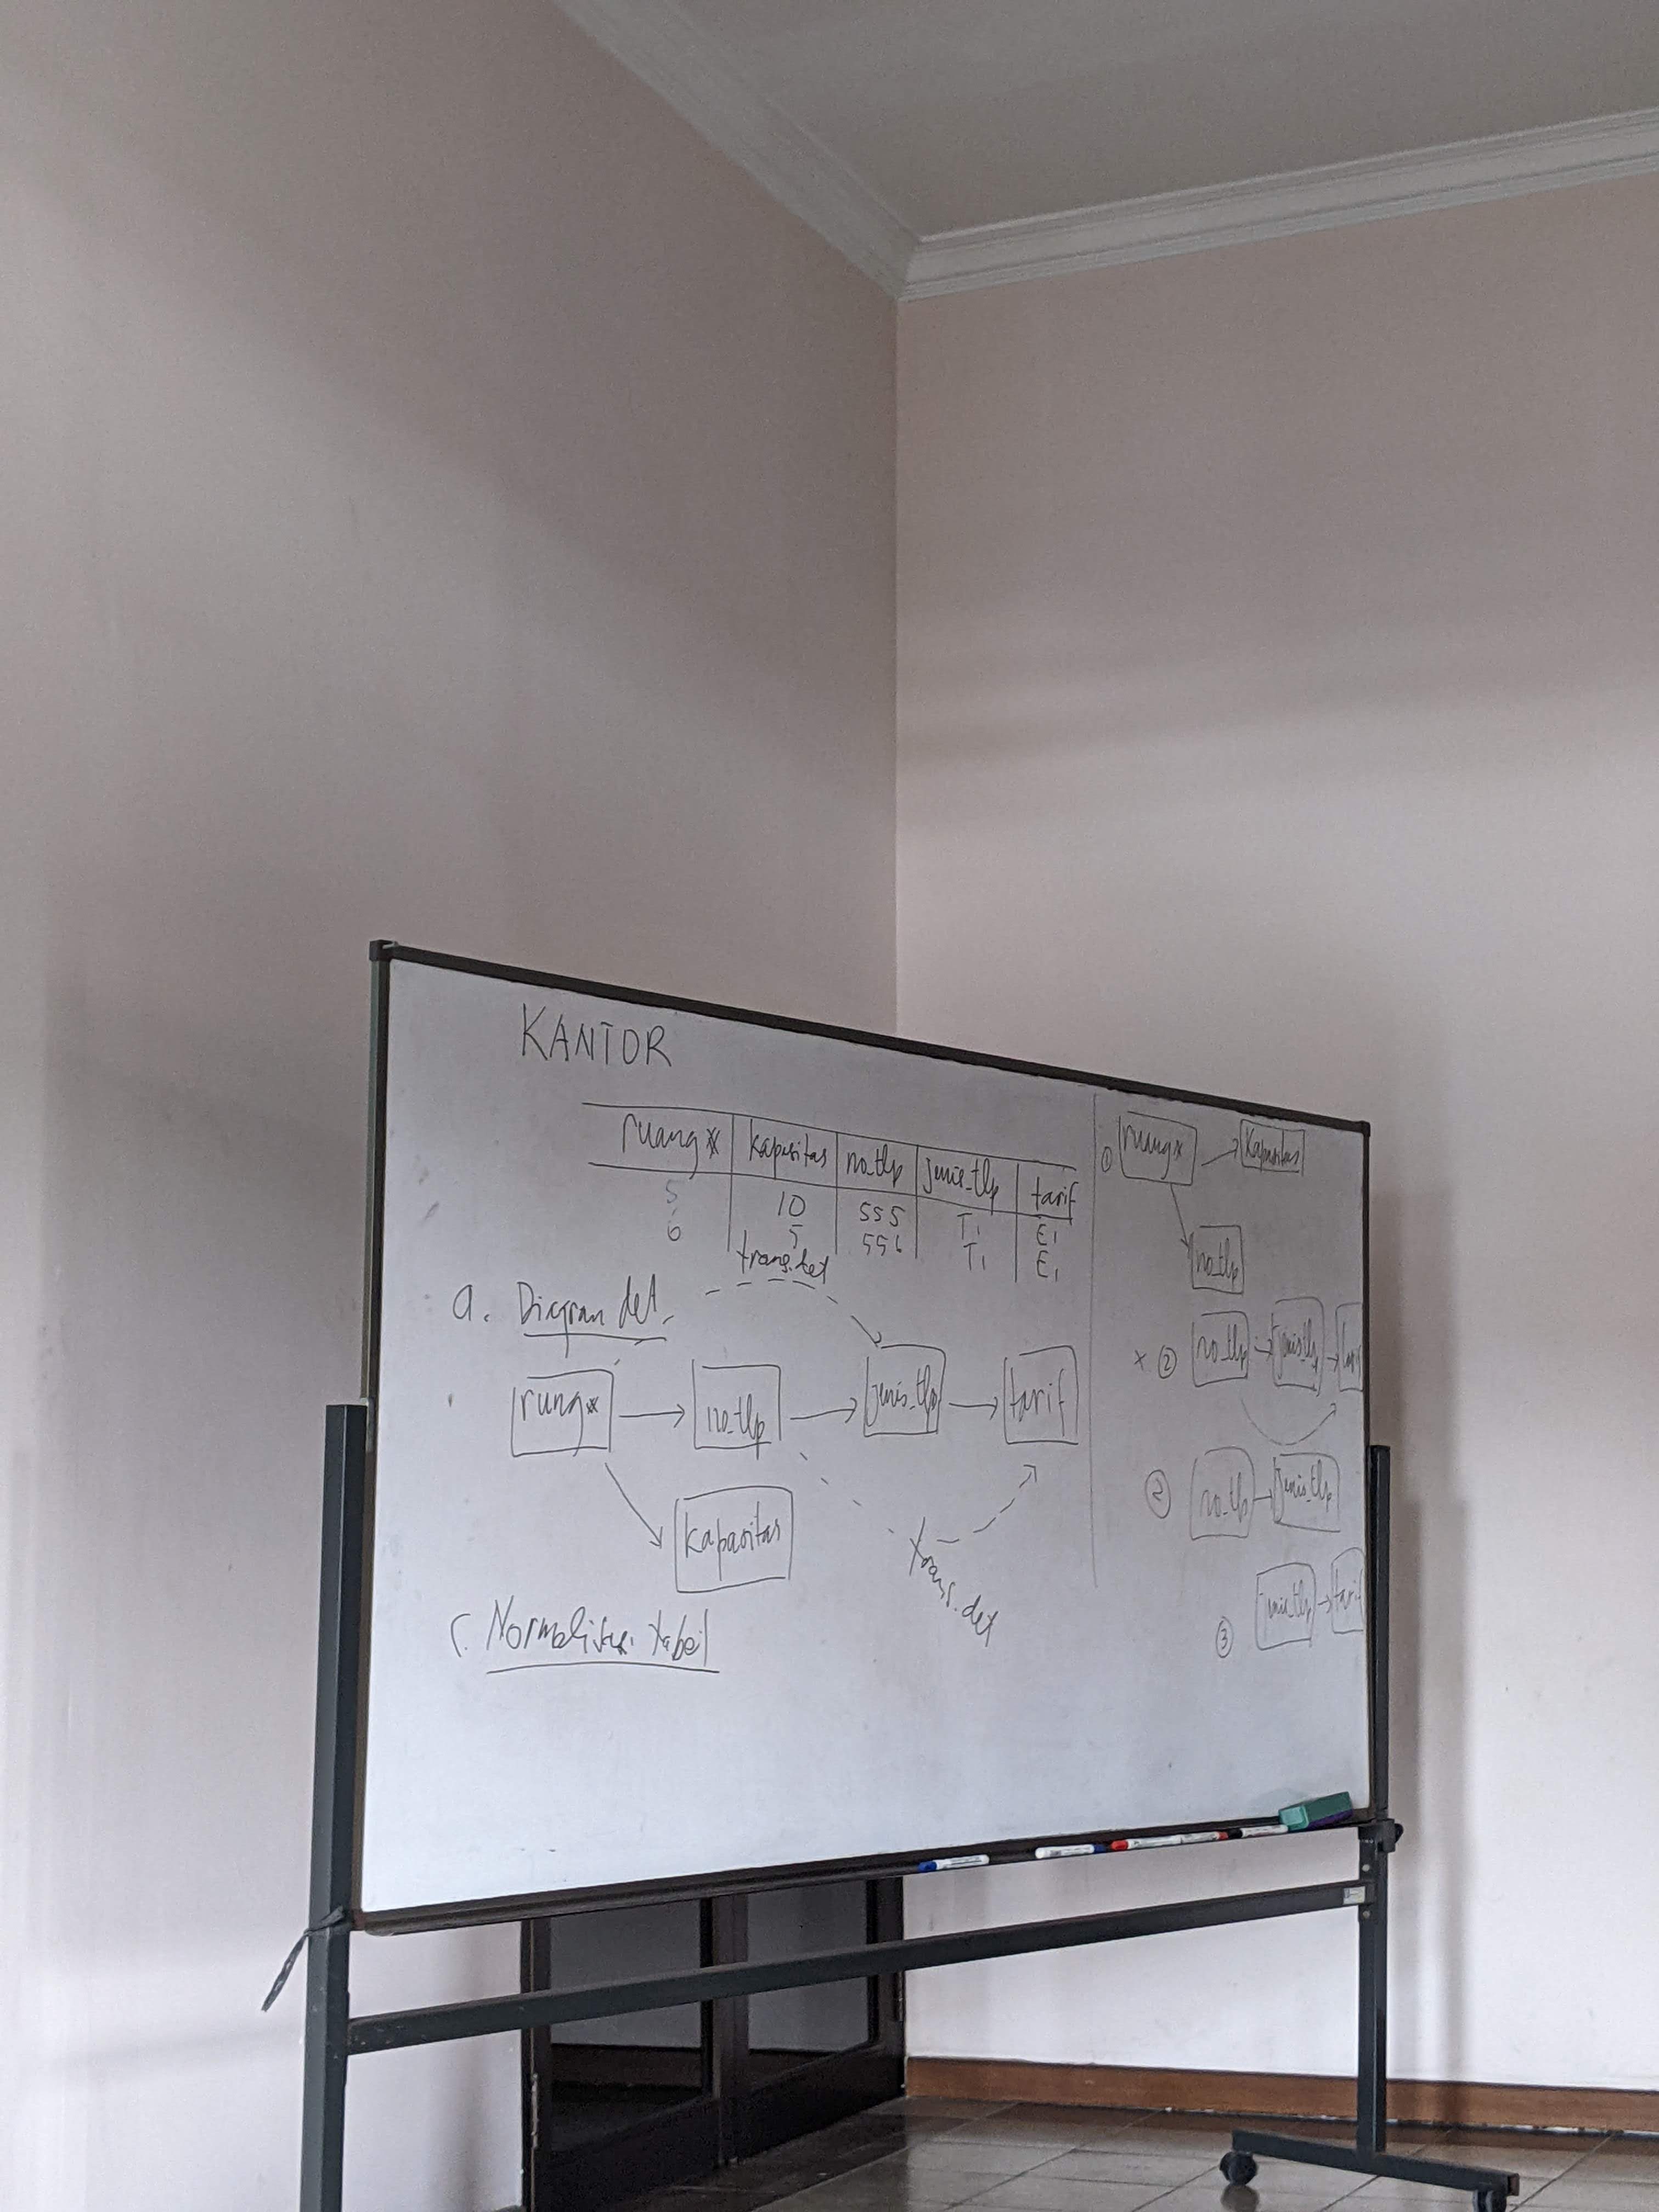 KANTOR
ruang* kapasitas no_tlp jenis_tlp tarif
5 10 555 T1 E1
6 5 556 T1 E1
trans.det
a. Diagram det.
rung* no_tlp jenis_tlp tarif
kapasitas
trans.det
c. Normalisasi tabel
① ruang* kapasitas
no_tlp
x ② no_tlp jenis_tlp
② no_tlp jenis_tlp
③ jenis_tlp tarif